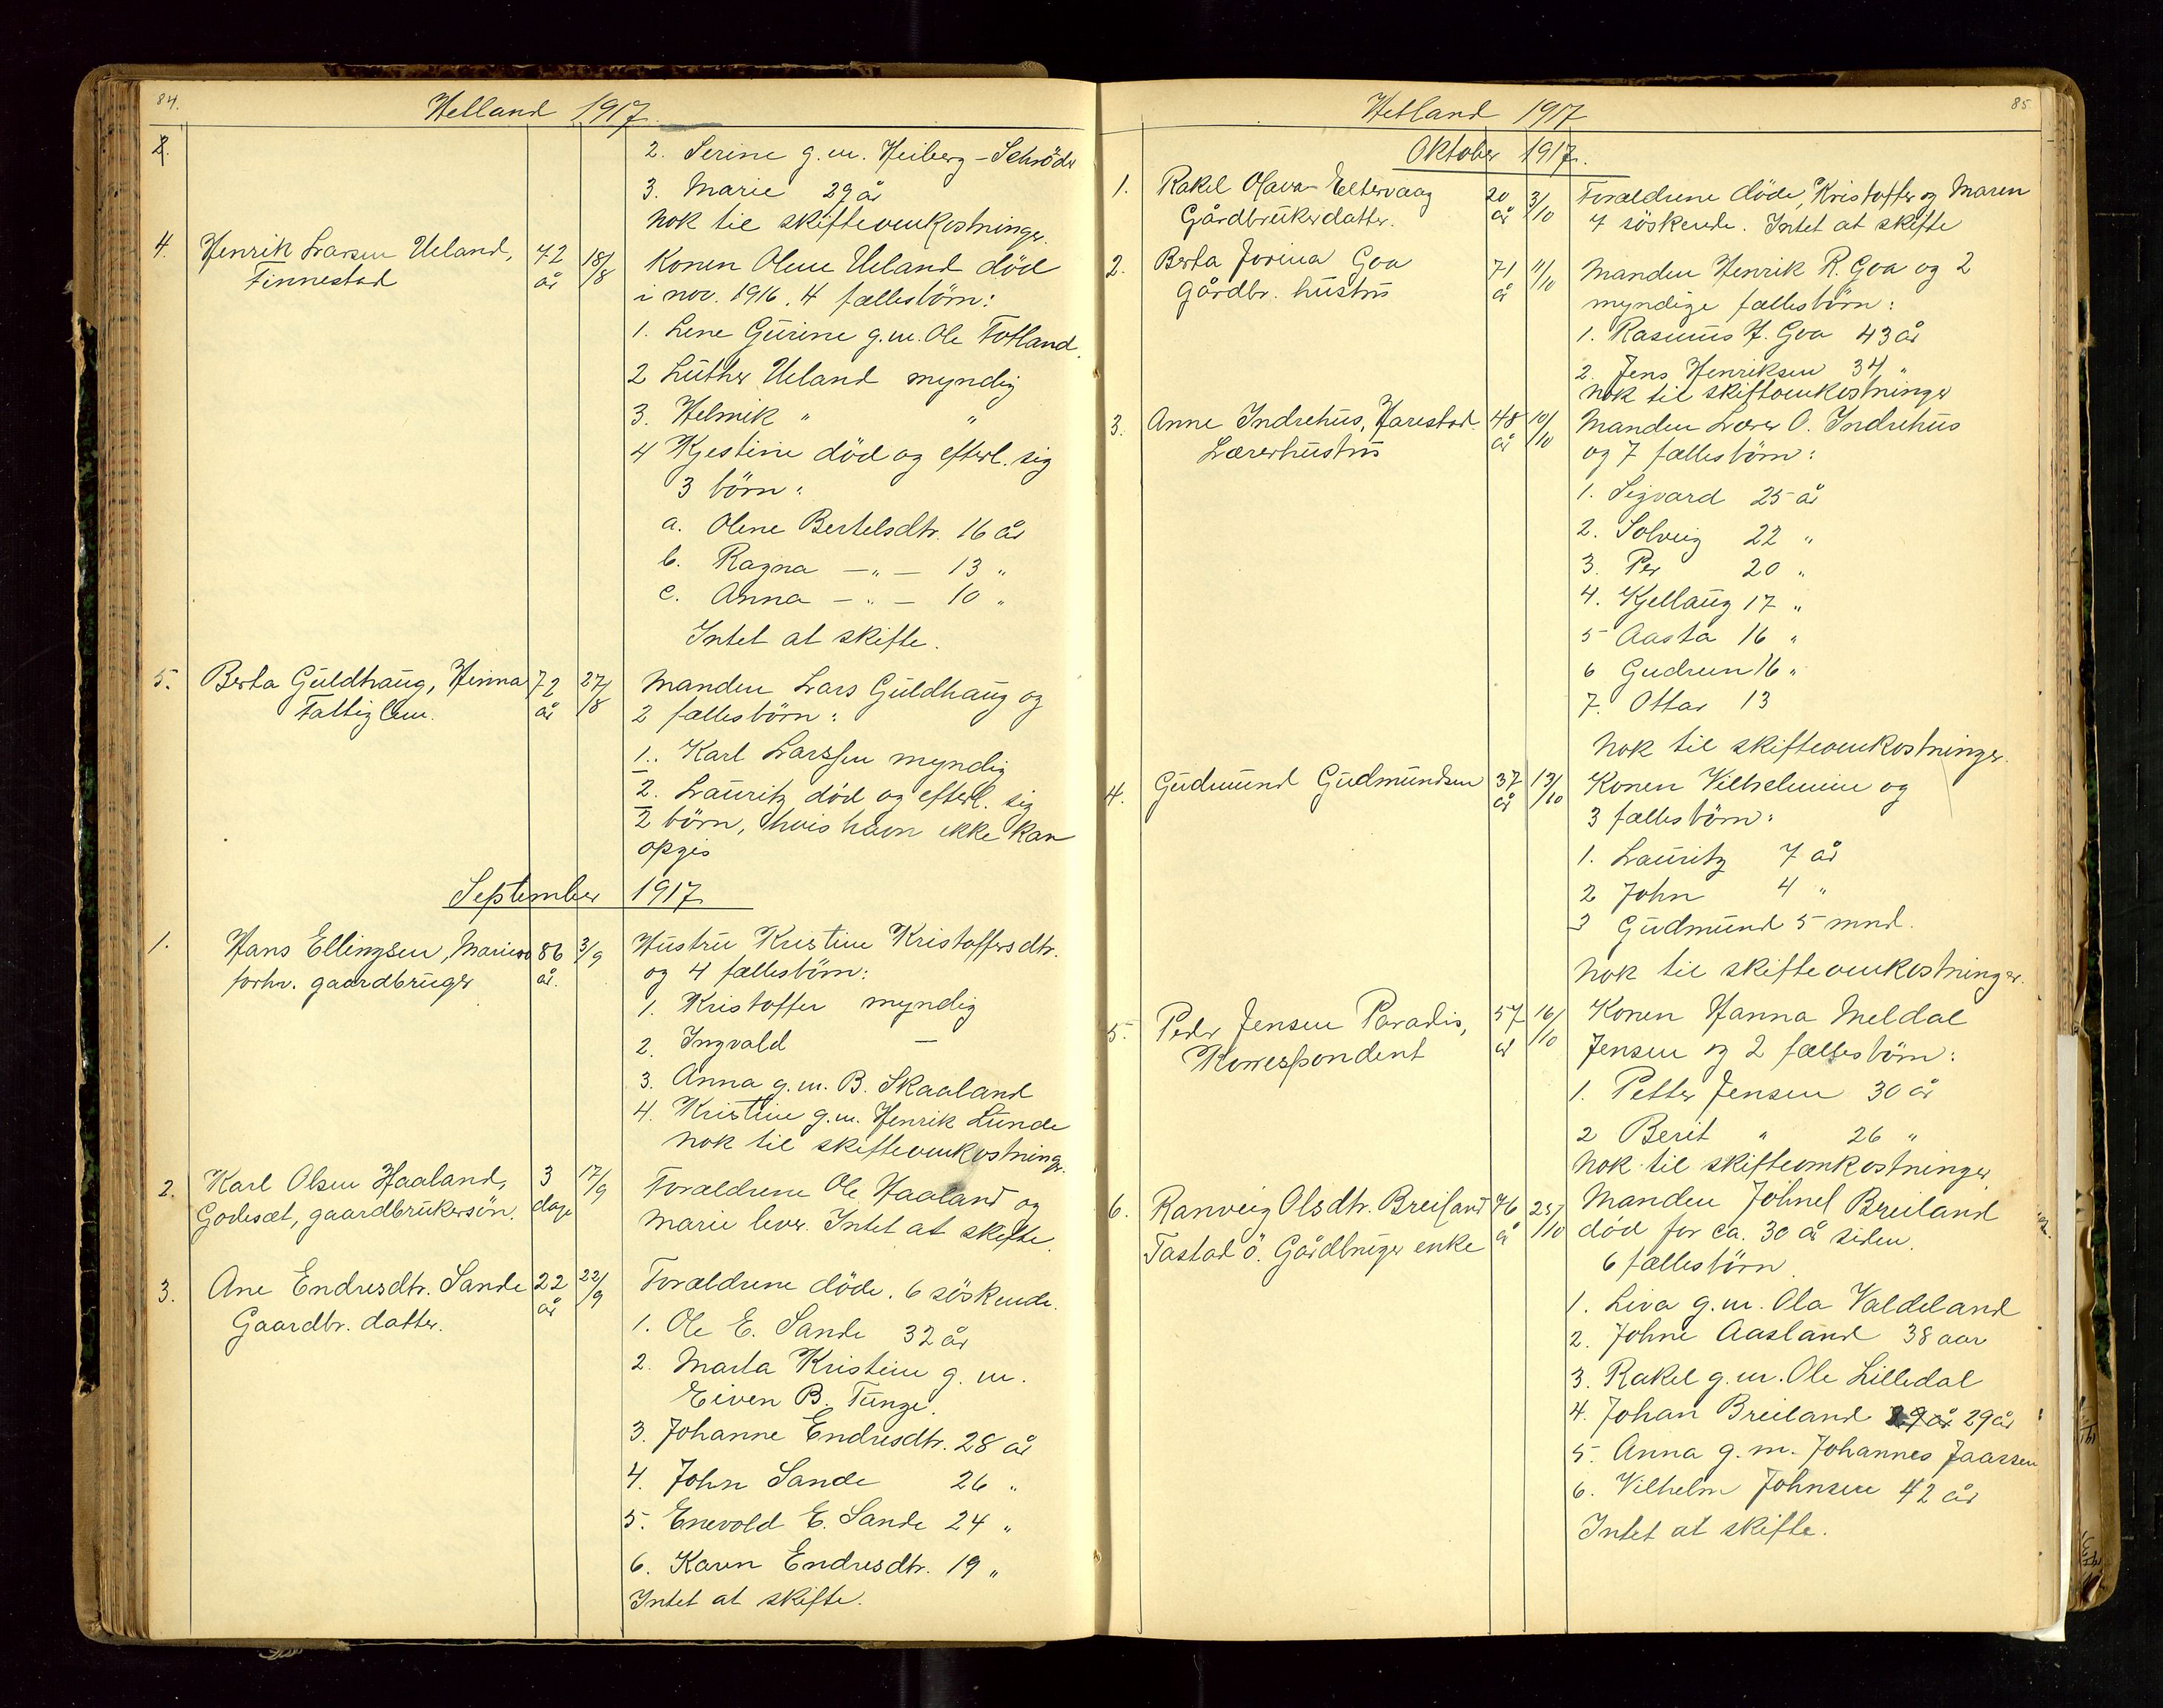 84.
Hetland 1917.
2.
2. Serine g.m. Heiberg-Schröder
3. Marie 29 år
Nok til skifteomkostninger.
4. Henrik Larsen Ueland, 72 18/8 Konen Olene Ueland död
Finnestad år i nov. 1916. 4 fællesbörn:
1. Lene Gurine g.m. Ole Totland.
2 Luther Ueland myndig
3. Helmik " "
4 Kjestine död og efterl. sig
3 börn:
a. Olene Bertelsdtr. 16 år
b. Ragna —"— 13 "
c. Anna —"— 10 "
Intet at skifte.
5. Berta Guldhaug, Hinna 72 27/8 Manden Lars Guldhaug og
Fattiglem. år 2 fællesbörn:
1. Karl Larssen myndig
2. Lauritz död og efterl. sig
2 börn, hvis navn ikke kan
opgis
September 1917
1. Hans Ellingsen, Mariero 86 3/9 Hustru Kristine Kristoffersdtr.
forhv. gaardbruger år. og 4 fællesbörn:
1. Kristoffer myndig
2. Ingvald —
3. Anna g.m. B. Skaaland
4. Kristine g.m. Henrik Lunde
Nok til skifteomkostninger.
2. Karl Olsen Haaland, 3 17/9 Forældrene Ole Haaland og
Godeset, gaardbrukersön. dage Marie lever. Intet at skifte.
3. Ane Endresdtr. Sande 22 22/9 Forældrene döde. 6 söskende.
Gaardbr. datter. år
1. Ole E. Sande 32 år
2. Marta Kristine g. m.
Eiven B. Tunge.
3. Johanne Endresdtr. 28 år
4. John Sande 26 "
5. Enevold E. Sande 24 "
6. Karen Endresdtr. 19 "
Intet at skifte.
85
Hetland 1917
Oktober 1917.
1. Rakel Olava Eltervaag 20 3/10 Forældrene döde, Kristoffer og Maren
Gårdbrukerdatter. år 7 söskende. Intet at skifte
2. Berta Jorina Goa 71 11/10 Manden Henrik R. Goa og 2
Gårdbr. hustru år myndige fællesbörn:
1. Rasmus H. Goa 43 år
2. Jens Henriksen 34 "
Nok til skifteomkostninger
3. Anne Indrehus, Harestad. 48 10/10 Manden Lærer O. Indrehus
Lærerhustru år og 7 fællesbörn:
1. Sigvard 25 år
2. Solveig 22 "
3. Per 20 "
4. Kjellaug 17 "
5 Aasta 16 "
6 Gudrun 16 "
7. Ottar 13
Nok til skifteomkostninger.
4. Gudmund Gudmundsen 37 13/10 Konen Vilhelmine og
år 3 fællesbörn:
1. Lauritz 7 år
2 John 4 "
3 Gudmund 5 mnd.
Nok til skifteomkostninger.
5. Peder Jensen Paradis, 57 16/10 Konen Hanna Meldal
Korrespondent år Jensen og 2 fællesbörn:
1. Petter Jensen 30 år
2 Berit " 26 "
Nok til skifteomkostninger
6. Ranveig Olsdtr. Breiland 76 25/10 Manden Johnel Breiland
Tastad ö. Gårdbruger enke år död for ca. 30 år siden.
6 fællesbörn.
1. Liva g.m. Ola Valdeland
2. Johne Aasland 38 aar
3. Rakel g.m. Ole Lilledal
4. Johan Breiland 29 år
5. Anna g.m. Johannes Jaassen
6. Vilhelm Johnsen 42 år
Intet at skifte.